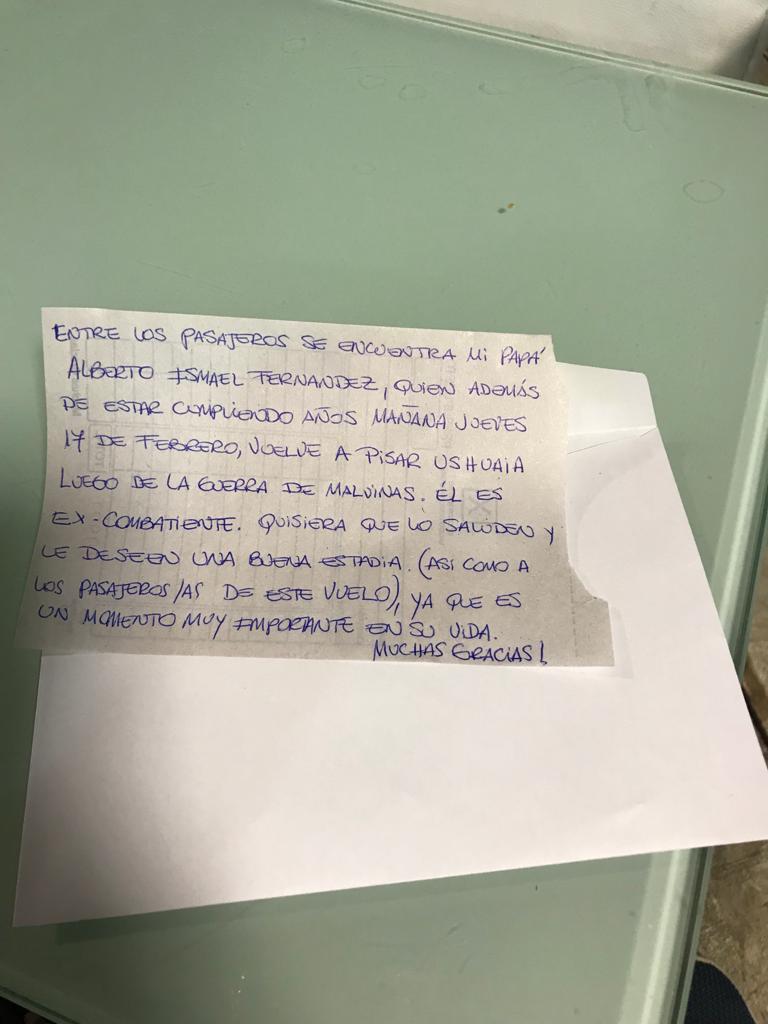 ENTRE LOS PASAJEROS SE ENCUENTRA MI PAPÁ
ALBERTO ISMAEL FERNANDEZ, QUIEN ADEMÁS
DE ESTAR CUMPLIENDO AÑOS MAÑANA JUEVES
17 DE FEBRERO, VUELVE A PISAR USHUAIA
LUEGO DE LA GUERRA DE MALVINAS. ÉL ES
EX-COMBATIENTE. QUISIERA QUE LO SALUDEN Y
LE DESEEN UNA BUENA ESTADIA. (ASI COMO A
LOS PASAJEROS/AS DE ESTE VUELO), YA QUE ES
UN MOMENTO MUY IMPORTANTE EN SU VIDA.
MUCHAS GRACIAS!